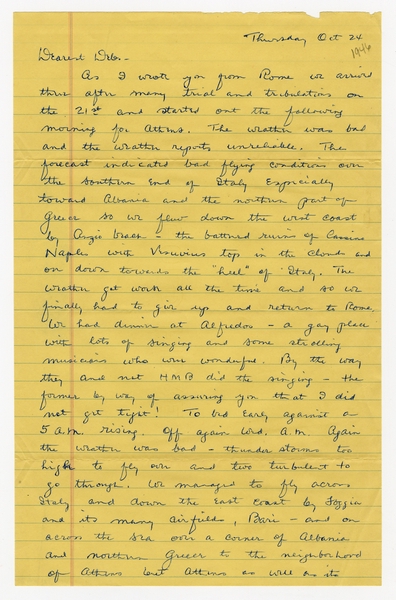 Thursday Oct 24
1946
Dearest Deb.-
As I wrote you from Rome we arrived
there after many trial and tribulations on
the 21st and started out the following
morning for Athens. The weather was bad
and the weather reports unreliable. The
forecast indicated bad flying conditions over
the southern End of Italy Especially
toward Albania and the northern part of
Greece so we flew down the west coast
by Anzio beach - the battered ruins of Cassino
Naples with Vesuvius top in the clouds and
on down towards the "heel" of Italy. The
weather got worse all the time and so we
finally had to give up and return to Rome.
We had dinner at Alfredos - a gay place
with lots of singing and some strolling
musicians who were wonderful. By the way
they and not HMB did the singing - the
former by way of assuring you that I did
not get tight! To bed Early against a
5 A.M. rising. Off again Wed. A.M. Again
the weather was bad - thunder storms too
high to fly over and two turbulent to
go through. We managed to fly across
Italy and down the East coast by Foggia
and its many airfields, Bari - and on
across the sea over a corner of Albania
and northern Greece to the neighborhood
of Athens but Athens as well as its